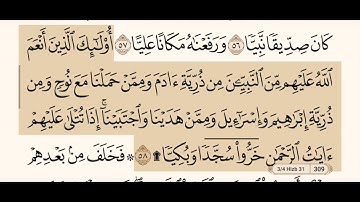 كَانَ صِدِّيقًا نَّبِيًّا ٥٦ وَرَفَعْنَٰهُ مَكَانًا عَلِيًّا ٥٧ أُو۟لَٰٓئِكَ ٱلَّذِينَ أَنْعَمَ
ٱللَّهُ عَلَيْهِم مِّنَ ٱلنَّبِيِّـۧنَ مِن ذُرِّيَّةِ ءَادَمَ وَمِمَّنْ حَمَلْنَا مَعَ نُوحٍ وَمِن
ذُرِّيَّةِ إِبْرَٰهِيمَ وَإِسْرَٰٓءِيلَ وَمِمَّنْ هَدَيْنَا وَٱجْتَبَيْنَآ إِذَا تُتْلَىٰ عَلَيْهِمْ
ءَايَٰتُ ٱلرَّحْمَٰنِ خَرُّوا۟ سُجَّدًا وَبُكِيًّا ۩ ٥٨ * فَخَلَفَ مِنۢ بَعْدِهِمْ
3/4 Hizb 31 309